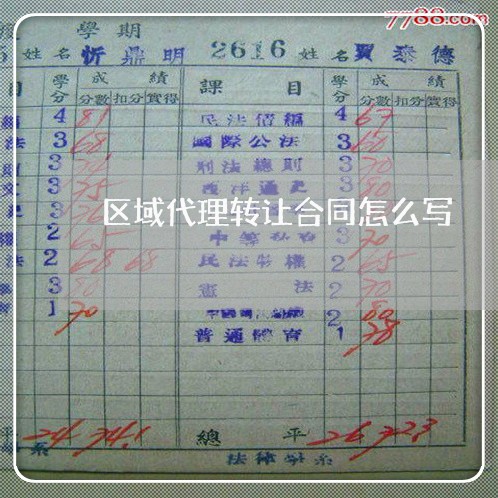 7788.com
度 學 期
姓名 忻鼎明 2616 姓名 賈泰德
目 學分 成績 課目 學分 成績
分數 扣分 實得 分數 扣分 實得
4 81 民法債編 4 67
法 3 68 國際公法 3 60
3 刑法總則 3 70
文 3 75 西洋通史 3 80
區域代理转让合同怎么写
2 65 3 70
法 2 68 68 民法物權 2 65
3 80 憲法 2 70
1 70 2 80
普通體育 1 78
平 24 74.1 總平 26 72.3
系 法律學系